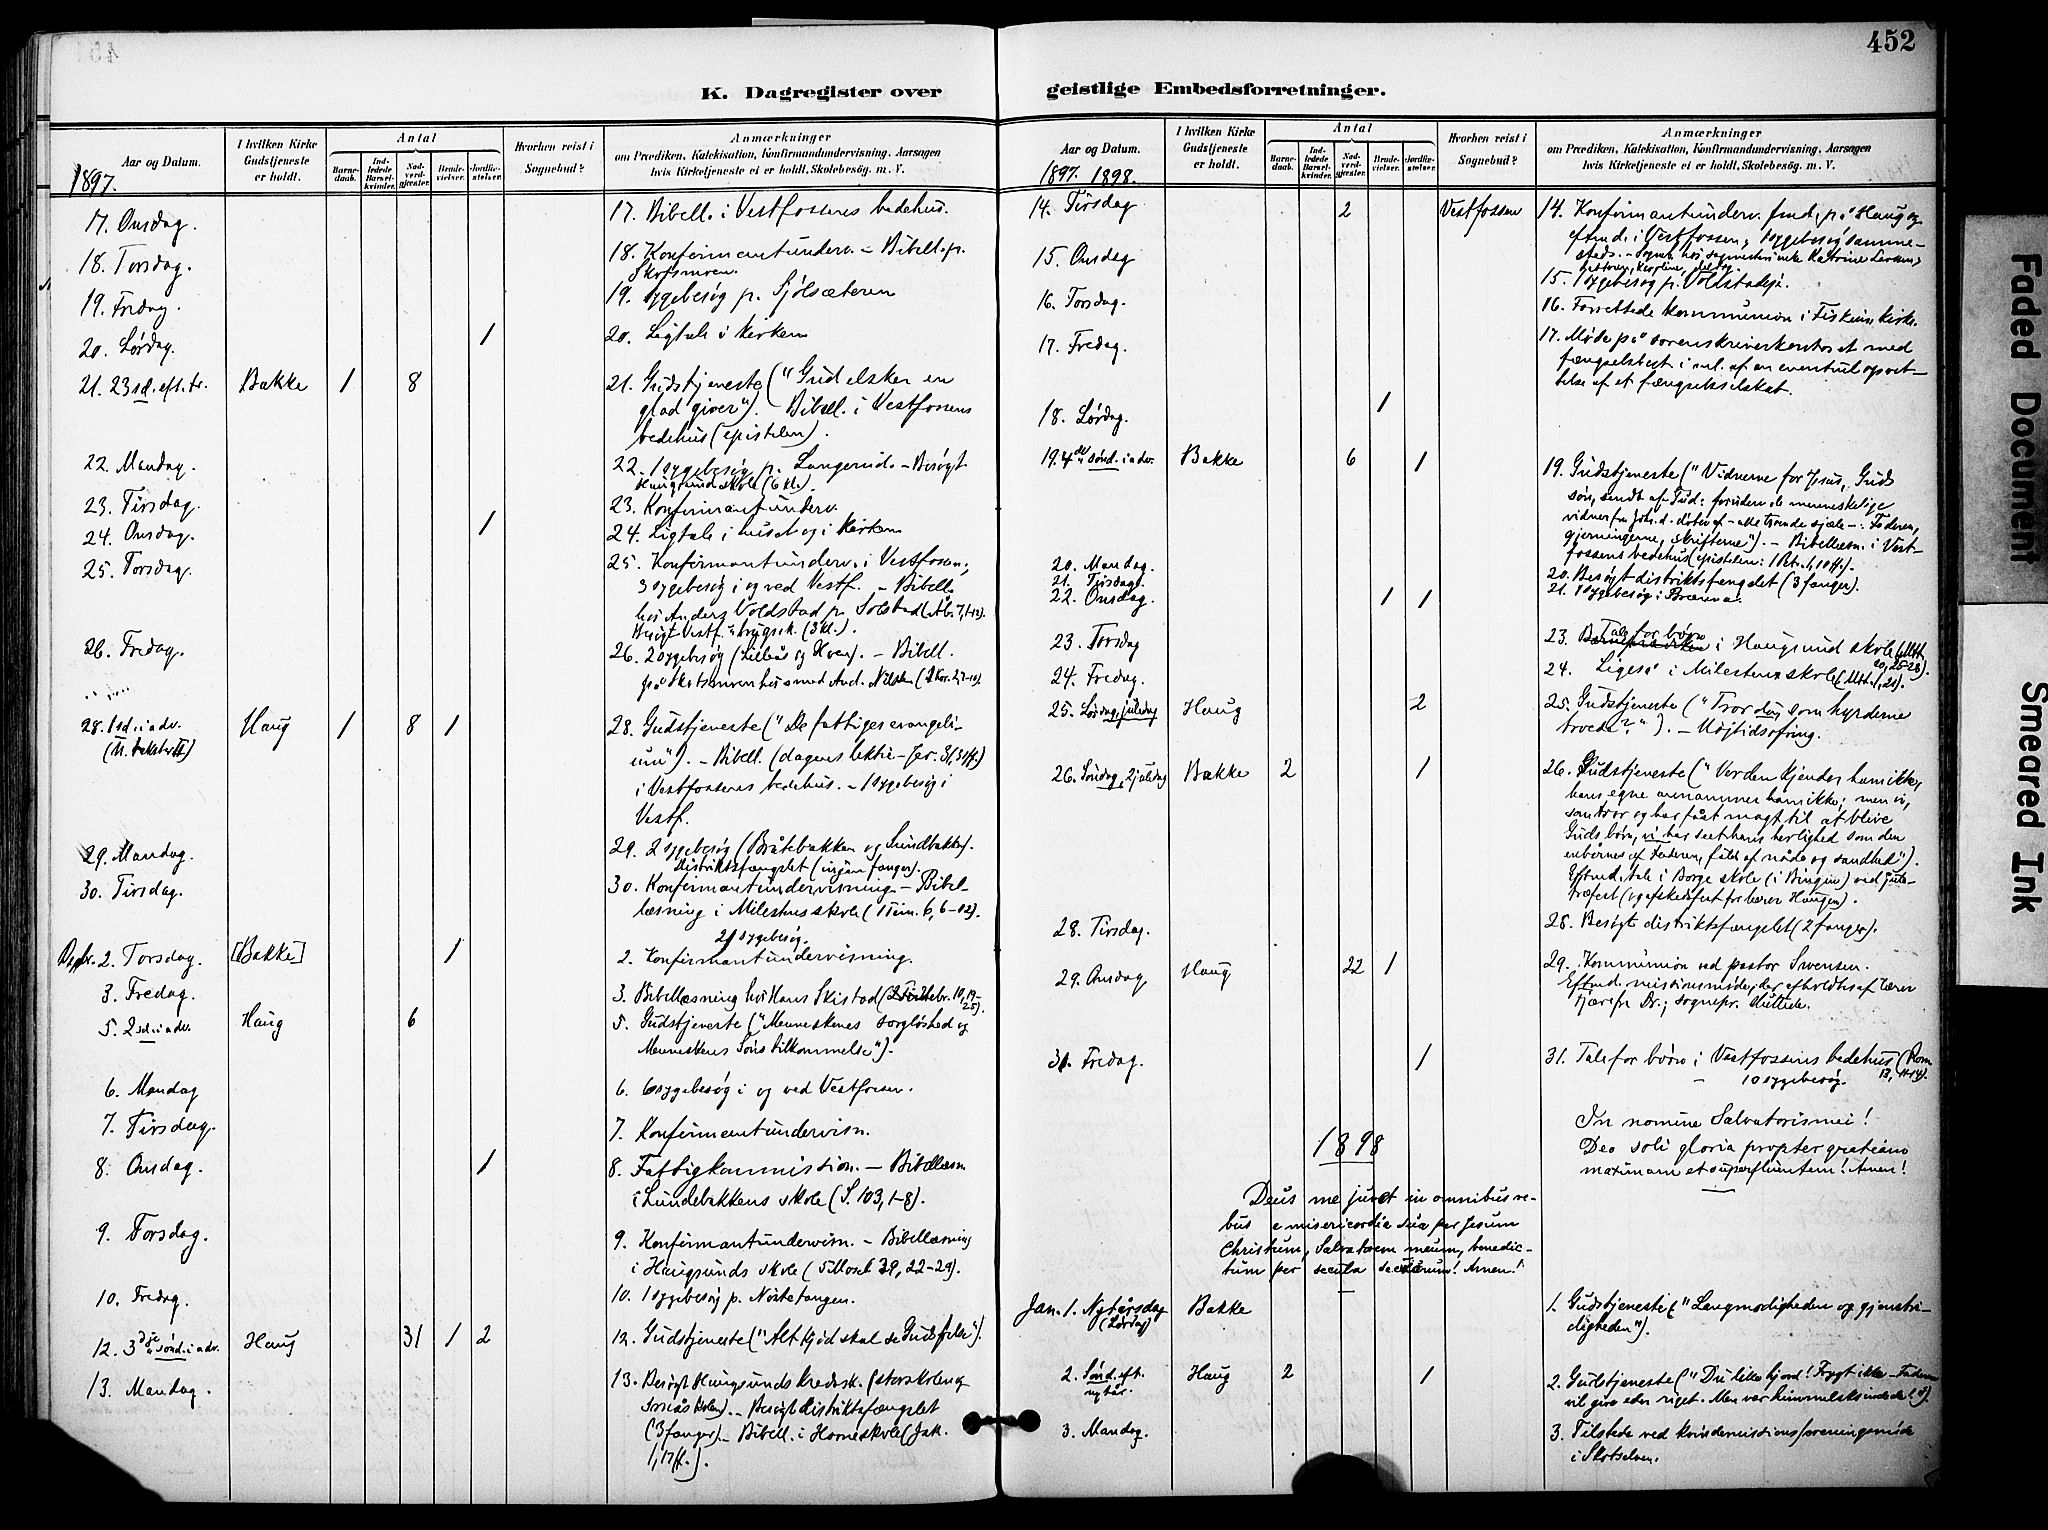 452
K. Dagregister over
geistlige Embedsforretninger.
Aar og Datum.
I hvilken Kirke Gudstjeneste er holdt.
Antal
Barnedaab.
Indledede Barselkvinder.
Nadverdgjester.
Brudevielser.
Jordfæstelser.
Hvorhen reist i Sognebud?
Anmærkninger
om Prædiken, Katekisation, Konfirmandundervisning, Aarsagen
hvis Kirketjeneste ei er holdt, Skolebesøg. m. V.
1897.
17. Onsdag.
17. Bibell. i Vestfossens bedehus.
18. Torsdag.
18. Konfirmantunderv. – Bibell. p.
19. Fredag.
19. sygebesøg p.
20. Lørdag. 1
20. Ligtale i kirken
21. 23 sd. eft. tr. Bakke 1 8
21. Gudstjeneste ("Gud elsker en
glad giver"). – Bibell. i Vestfossens
bedehus (epistelen).
22. Mandag.
22. 1 sygebesøg p. Langerud. – Besøgt
Haugsund skole (6 kl.).
23. Tirsdag.
23. Konfirmantunderv.
24. Onsdag. 1
24. Ligtale i huset og i kirken
25. Torsdag.
25. Konfirmantunderv. i Vestfossen;
3 sygebesøg i og ved Vestf. – Bibell.
hos Anders Voldstad p. Solstad
26. Fredag.
26. 2 sygebesøg – Bibell.
28. 1 sd. i adv. Haug 1 8 1
28. Gudstjeneste ("De fattiges evangeli-
um"). – Bibell. (dagens lektie – Jer. 31, 31 ff.)
i Vestfossens bedehus. – 1 sygebesøg i
Vestf.
29. Mandag.
29. 2 sygebesøg (Bråtebakken og Lundbakken).
Distriktsfængslet (ingen fanger).
30. Tirsdag.
30. Konfirmantundervisning – Bibel-
læsning i Milesteens skole (1 Tim. 6, 6–12).
2 sygebesøg.
2. Torsdag. [Bakke] 1
2. Konfirmantundervisning.
3. Fredag.
3. Bibellæsning hos Hans Skistad
5. 2 sd. i adv. Haug 6
5. Gudstjeneste ("Menneskenes sorgløshed og
Menneskens Søns tilkommelse").
6. Mandag
6. 6 sygebesøg i og ved Vestfossen.
7. Tirsdag.
7. Konfirmantundervisn.
8. Onsdag. 1
8. Fattigkommission. – Bibellæsn.
i Lundebakkens skole (S. 103, 1–8).
9. Torsdag.
9. Konfirmantundervisn. – Bibellæsning
i Haugsunds skole
10. Fredag.
10. 1 sygebesøg p. Nøstetangen.
12. 3dje sønd. i adv. Haug 31 1 2
12. Gudstjeneste ("Alt kjød skal se Guds frelse").
13. Mandag.
13. Besøgt Haugsunds kredssk. (storskolen og
småskolen). – Besøgt distriktsfængslet
(3 fanger). – Bibell. i Horne skole (Jak.
1, 17 ff.).
Aar og Datum.
I hvilken Kirke Gudstjeneste er holdt.
Antal
Barnedaab.
Indledede Barselkvinder.
Nadverdgjester.
Brudevielser.
Jordfæstelser.
Hvorhen reist i Sognebud?
Anmærkninger
om Prædiken, Katekisation, Konfirmandundervisning, Aarsagen
hvis Kirketjeneste ei er holdt, Skolebesøg. m. V.
1897. 1898.
14. Tirsdag 2 Vestfossen
14. Konfirmantunderv. fmd. på Haug og
eftmd. i Vestfossen, sygebesøg samme-
steds.
15. Onsdag
15. 1 sygebesøg p.
16. Torsdag.
16. Forrettede kommunion i Fiskum kirke.
17. Fredag.
17. Møde på sorenskriverkontoret med
fængselsbest. i anl. af en eventuel opret-
telse af et fængselsselskab.
18. Lørdag. 1
19. 4de sønd. i adv. Bakke 6 1
19. Gudstjeneste ("Vidnerne for Jesus, Guds
søn, sendt af Gud: foruden de menneskelige
vidner fra Joh. d. døber af – alle troende sjæle –: Faderen,
gjerningerne, skrifterne"). – Bibellæsn. i Vest-
fossens bedehus (epistelen: 1 Pet. 1, 10 ff.).
20. Mandag.
20. Besøgt distriktsfængslet (3 fanger).
21. Tirsdag.
21. 1 sygebesøg i
22. Onsdag. 1 1
23. Torsdag
23. Tale for børn i Haugsund skole
24. Fredag.
24. Ligeså i Milesteens skole (Mtt. 1, 21).
25. Lørdag, juledag Haug 2
25. Gudstjeneste ("Tror du, som hyrderne
troede?"). – Højtidsofring.
26. Søndag, 2 juledag Bakke 2 1
26. Gudstjeneste ("Verden kjender ham ikke,
hans egne annammer ham ikke; men vi,
som tror og har fået magt til at blive
Guds børn, vi har seet hans herlighed som den
enbårnes af Faderen, fuld af nåde og sandhed").
Eftmd. tale i Borge skole (i Bingen) ved jule-
træfest (og afskedsfest for lærer Haugen).
28. Tirsdag.
28. Besøgt distriktsfængslet (2 fanger).
29. Onsdag Haug 22 1
29. Kommunion ved pastor Svensen.
Eftmd. missionsmøde, der afholdtes af lærer
31. Fredag. 1
31. Tale for børn i Vestfossens bedehus (Rom.
13, 11–14).
– 10 sygebesøg.
In nomine Salvatoris mei!
Deo soli gloria propter gratiam
maximam et superfluentem! Amen!
1898
Deus me juvet in omnibus re-
bus e misericordia sua per Jesum
Christum, Salvatorem meum, benedic-
tum per secula seculorum! Amen!
Jan. 1. Nytårsdag Bakke
(Lørdag)
1. Gudstjeneste ("Langmodigheden og gjenstri-
digheden").
2. Sønd. eft. nytår. Haug 2 1
2. Gudstjeneste ("Du lille hjord! Frygt ikke – Faderen
vil give eder riget. Men vær himmelsksindede!").
3. Mandag.
3. Tilstede ved kvindemissionsforeningsmøde
i Skotselven.
Faded Document
Smeared Ink